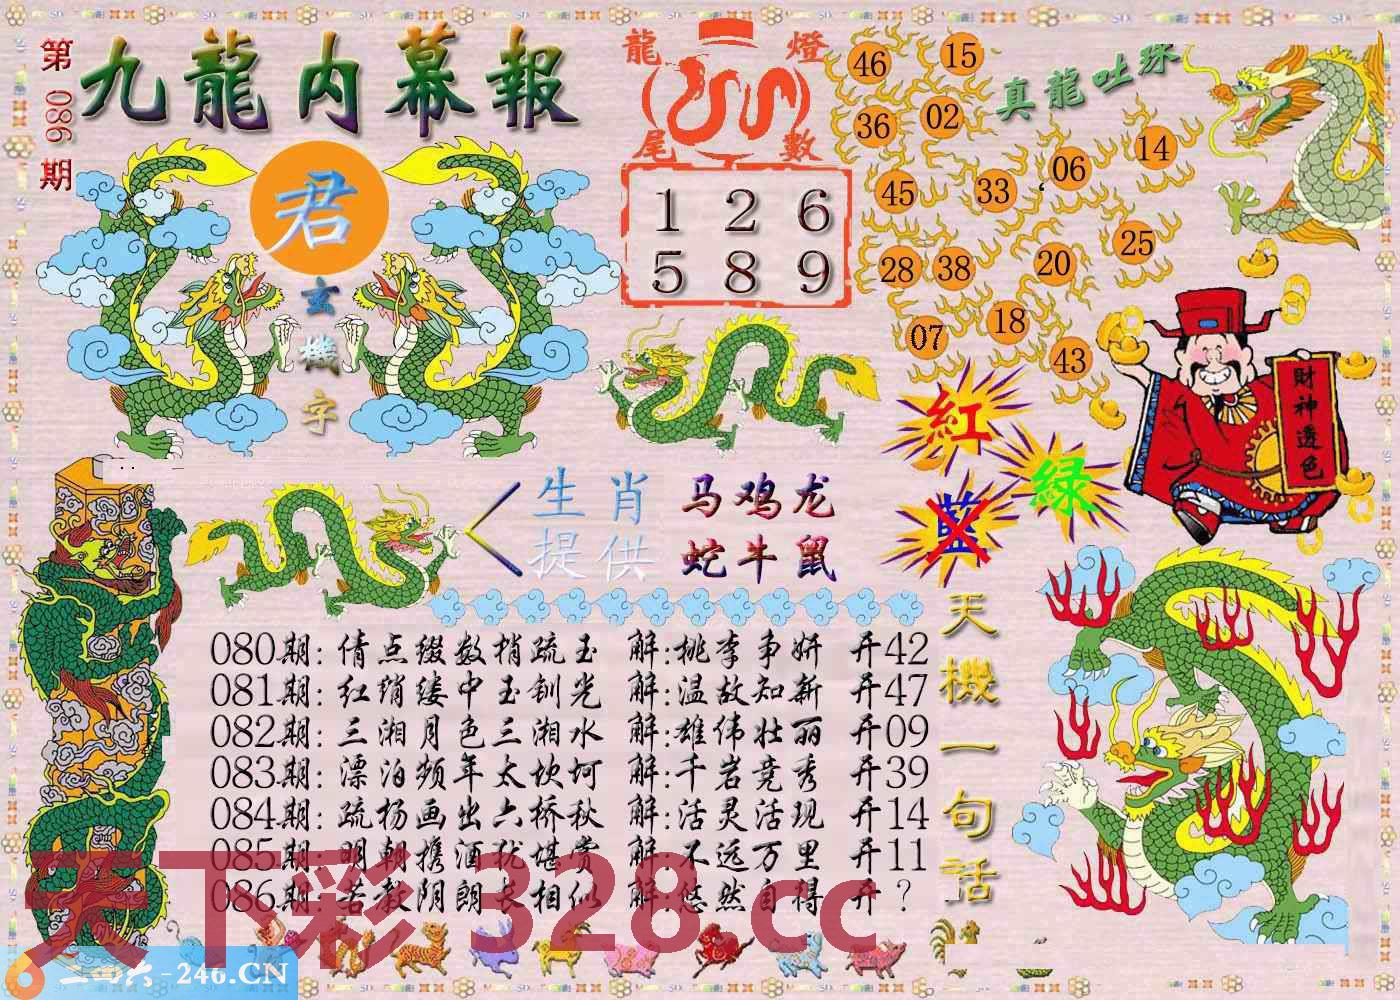 第086期
九龍内幕報
君
玄機字
龍燈
尾數
1 2 6
5 8 9
真龍吐珠
46 15
36 02
14
06
45 33
25
28 38 20
18
07
43
財神透色
紅
绿
藍
生肖
提供
马鸡龙
蛇牛鼠
天機一句話
080期:倩点缀数梢疏玉 解:桃李争妍 开42
081期:红绡缕中玉钏光 解:温故知新 开47
082期:三湘月色三湘水 解:雄伟壮丽 开09
083期:漂泊频年太坎坷 解:千岩竞秀 开39
084期:疏杨画出六桥秋 解:活灵活现 开14
085期:明朝携酒犹堪赏 解:不远万里 开11
086期:若教阴朗长相似 解:悠然自得 开?
天下彩 328.cc
二四六-246.CN